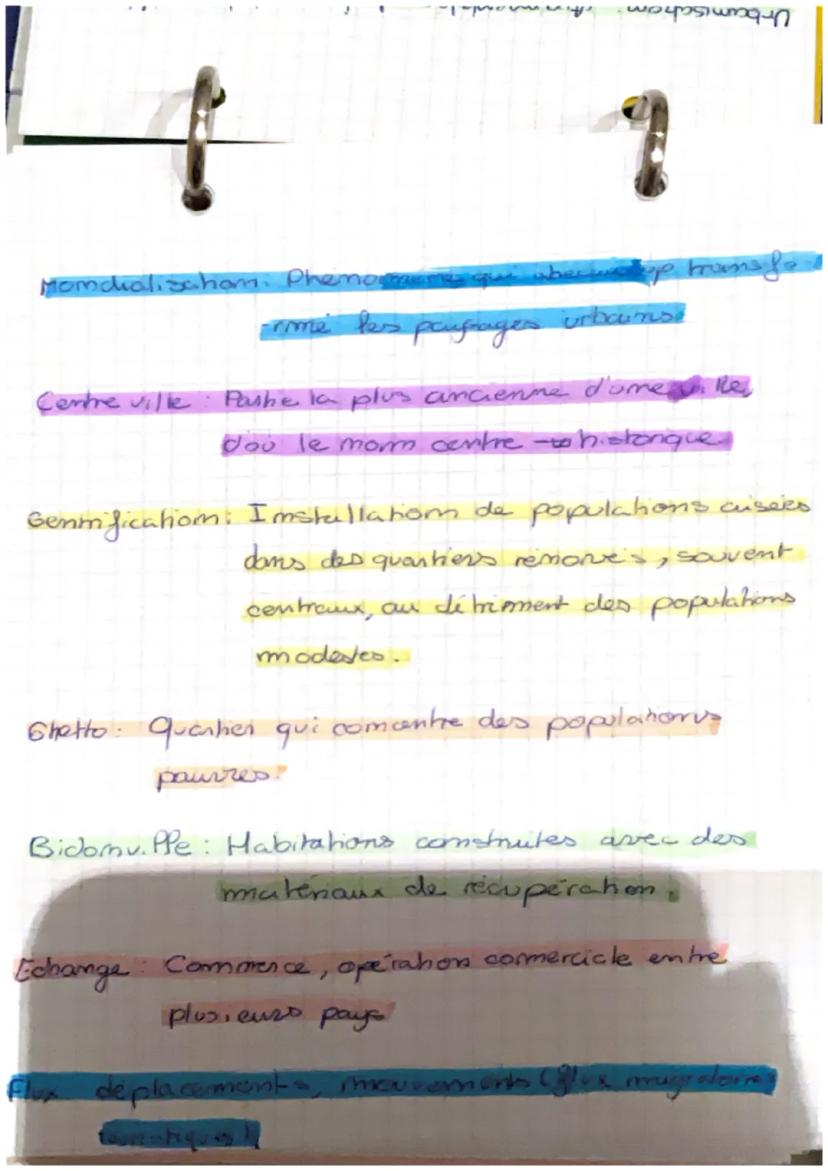 Urbanisation:
Mondialisation: Phénomène qui transfo
-rme les paysages urbains
Centre ville: Partie la plus ancienne d'une ville,
d'où le nom centre historique
Gentrification: Installation de populations aisées
dans des quartiers rénovés, souvent
centraux, au détriment des populations
modestes.
Ghetto: Quartier qui concentre des populations
pauvres.
Bidonville: Habitations construites avec des
matériaux de récupération.
Echange: Commerce, opération comerciale entre
plusieurs pays
Flux déplacements, mouvements (flux migratoires